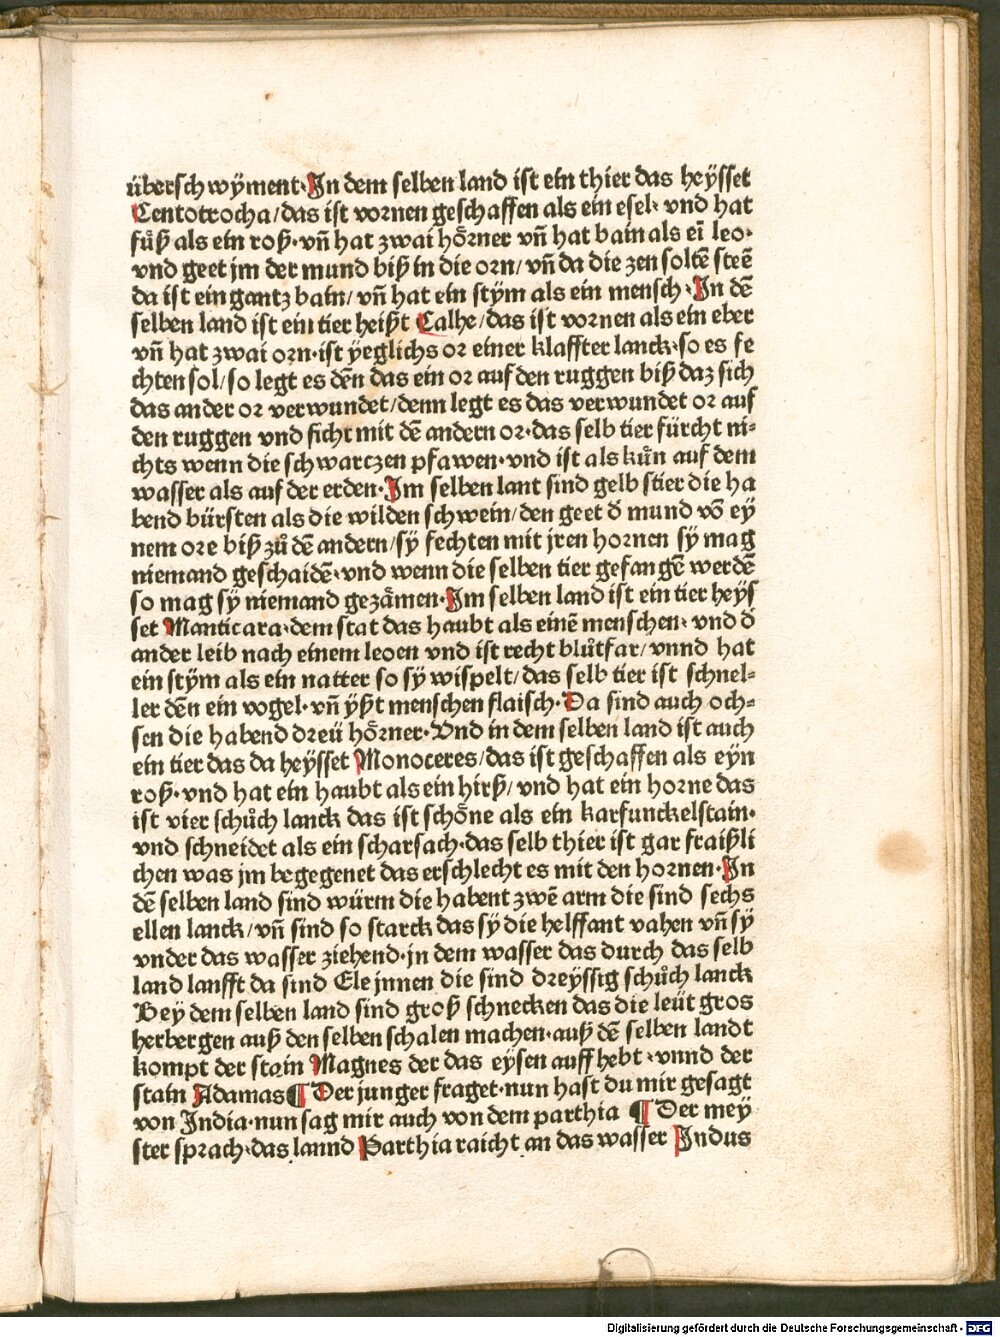 überschwÿment·In dem selben land ist ein thier das heÿsset
Centotrocha/das ist vornen geschaffen als ein esel· vnd hat
fuͤß als ein roß·vñ hat zwai hoͤrner vñ hat bain als eī leo·
vnd geet jm der mund biß in die orn/ vñ da die zen soltē steē
da ist ein gantz bain/ vñ hat ein stÿm als ein mensch·In dē
selben land ist ein tier heißt Calhe/das ist vornen als ein eber
vñ hat zwai orn·ist ÿeglichs or einer klaffter lanck·so es fe
chten sol/so legt es dēn das ein or auf den ruggen biß daz sich
das ander or verwundet/denn legt es das verwundet or auf
den ruggen vnd ficht mit dē andern or·das selb tier fürcht ni⸗
chts wenn die schwarczen pfawen·vnd ist als kuͤn auf dem
wasser als auf der erden·Im selben lant sind gelb stier die ha
bend bürsten als die wilden schwein/den geet d̄ mund vō eÿ
nem ore biß zů dē andern/sÿ fechten mit jren hornen sÿ mag
niemand geschaidē·vnd wenn die selben tier gefangē werdē
so mag sÿ niemand gezaͤmen·Im selben land ist ein tier heÿs
set Manticara·dem stat das haubt als einē menschen· vnd d̄
ander leib nach einem leoen vnd ist recht blůtfar/ vnnd hat
ein stÿm als ein natter so sÿ wispelt/das selb tier ist schnel⸗
ler dēn ein vogel·vñ ÿßt menschen flaisch·Da sind auch och⸗
sen die habend dreü hoͤrner·Vnd in dem selben land ist auch
ein tier das da heÿsset Monoceres/das ist geschaffen als eÿn
roß·vnd hat ein haubt als ein hirß/ vnd hat ein horne das
ist vier schůch lanck das ist schoͤne als ein karfunckelstain·
vnd schneidet als ein scharsach·das selb thier ist gar fraißli
chen was jm begegenet das erschlecht es mit den hornen·In
dē selben land sind würm die habent zwē arm die sind sechs
ellen lanck/vñ sind so starck das sÿ die helffant vahen vñ sÿ
vnder das wasser ziehend·jn dem wasser das durch das selb
land lanfft da sind Ele jnnen die sind dreÿssig schůch lanck
Beÿ dem selben land sind groß schnecken das die leüt gros
herbergen auß den selben schalen machen·auß dē selben landt
kompt der stain Magnes der das eÿsen auff hebt·vnnd der
stain Adamas ¶ Der junger fraget·nun hast du mir gesagt
von India·nun sag mir auch von dem parthia ¶ Der meÿ
ster sprach·das lannd Parthia raicht an das wasser Indus
Digitalisierung gefördert durch die Deutsche Forschungsgemeinschaft - DFG